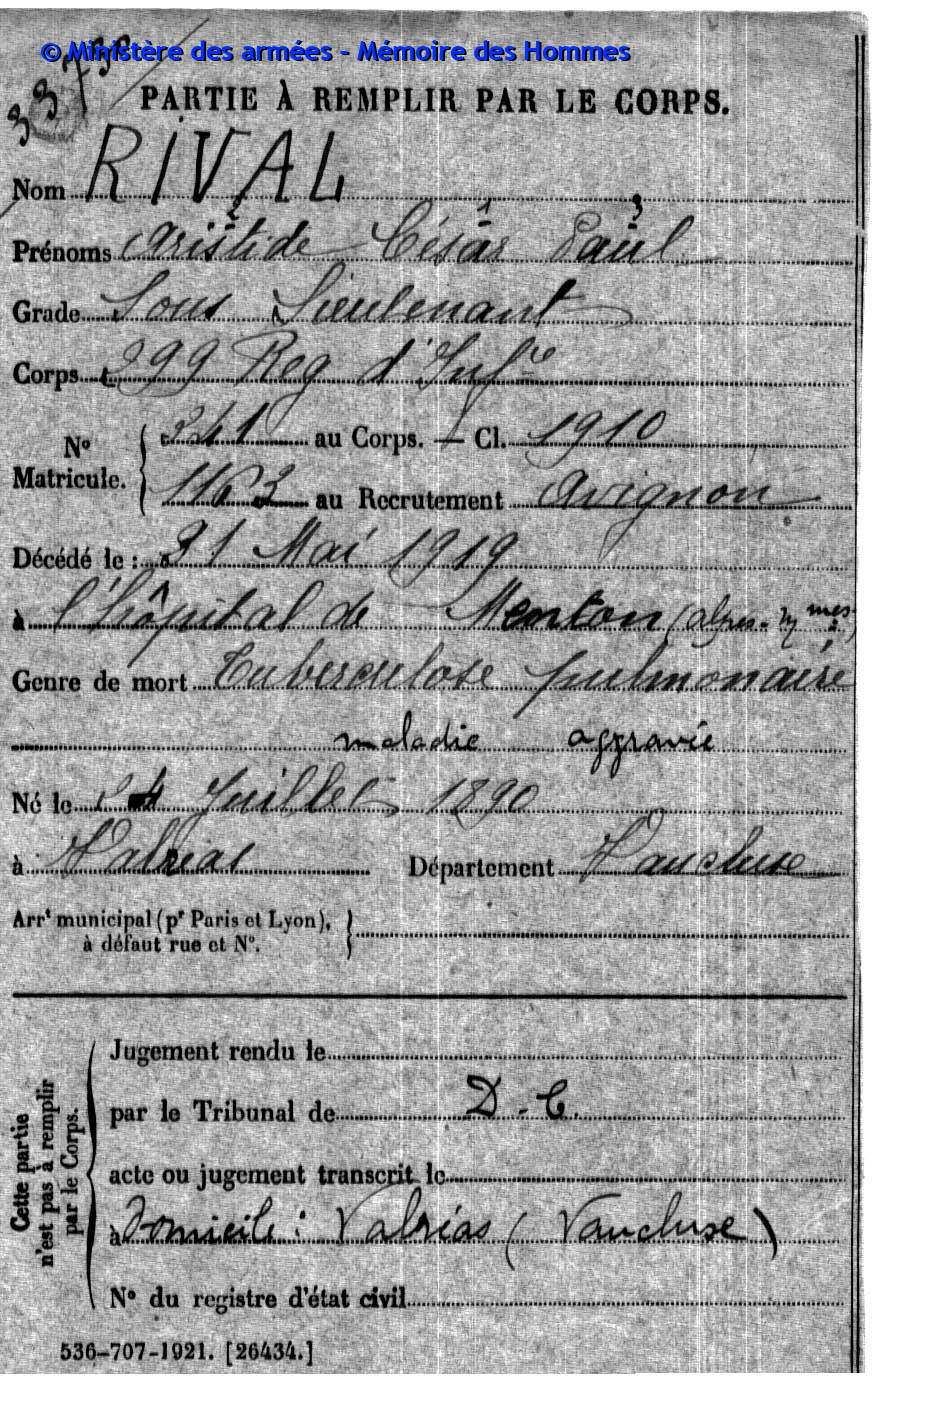 © Ministère des armées - Mémoire des Hommes
PARTIE À REMPLIR PAR LE CORPS.
Nom RIVAL
2 1 3
Prénoms Aristide César Paul
Grade Sous Lieutenant
Corps 299 Reg d'Infie
No Matricule. { 341 au Corps. — Cl. 1910
1163 au Recrutement Avignon
Décédé le : 31 Mai 1919
à l'hôpital de Menton (alpes-mmes)
Genre de mort Tuberculose pulmonaire
maladie aggravée
Né le Juillet 1890
à Valréas Département Vaucluse
Arrt municipal (pr Paris et Lyon),
à défaut rue et No.
Cette partie n'est pas à remplir par le Corps.
Jugement rendu le
par le Tribunal de D. C.
acte ou jugement transcrit le
à Domicile : Valréas (Vaucluse)
No du registre d'état civil
536-707-1921. [26434.]